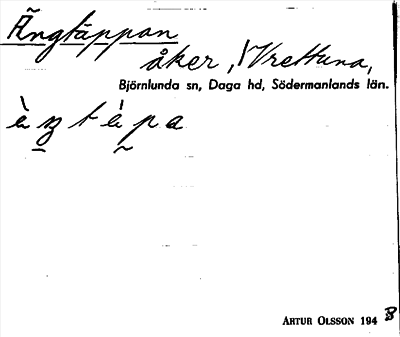 Ängtäppan
åker, Vrettuna,
Björnlunda sn, Daga hd, Södermanlands län.
ARTUR OLSSON 1943